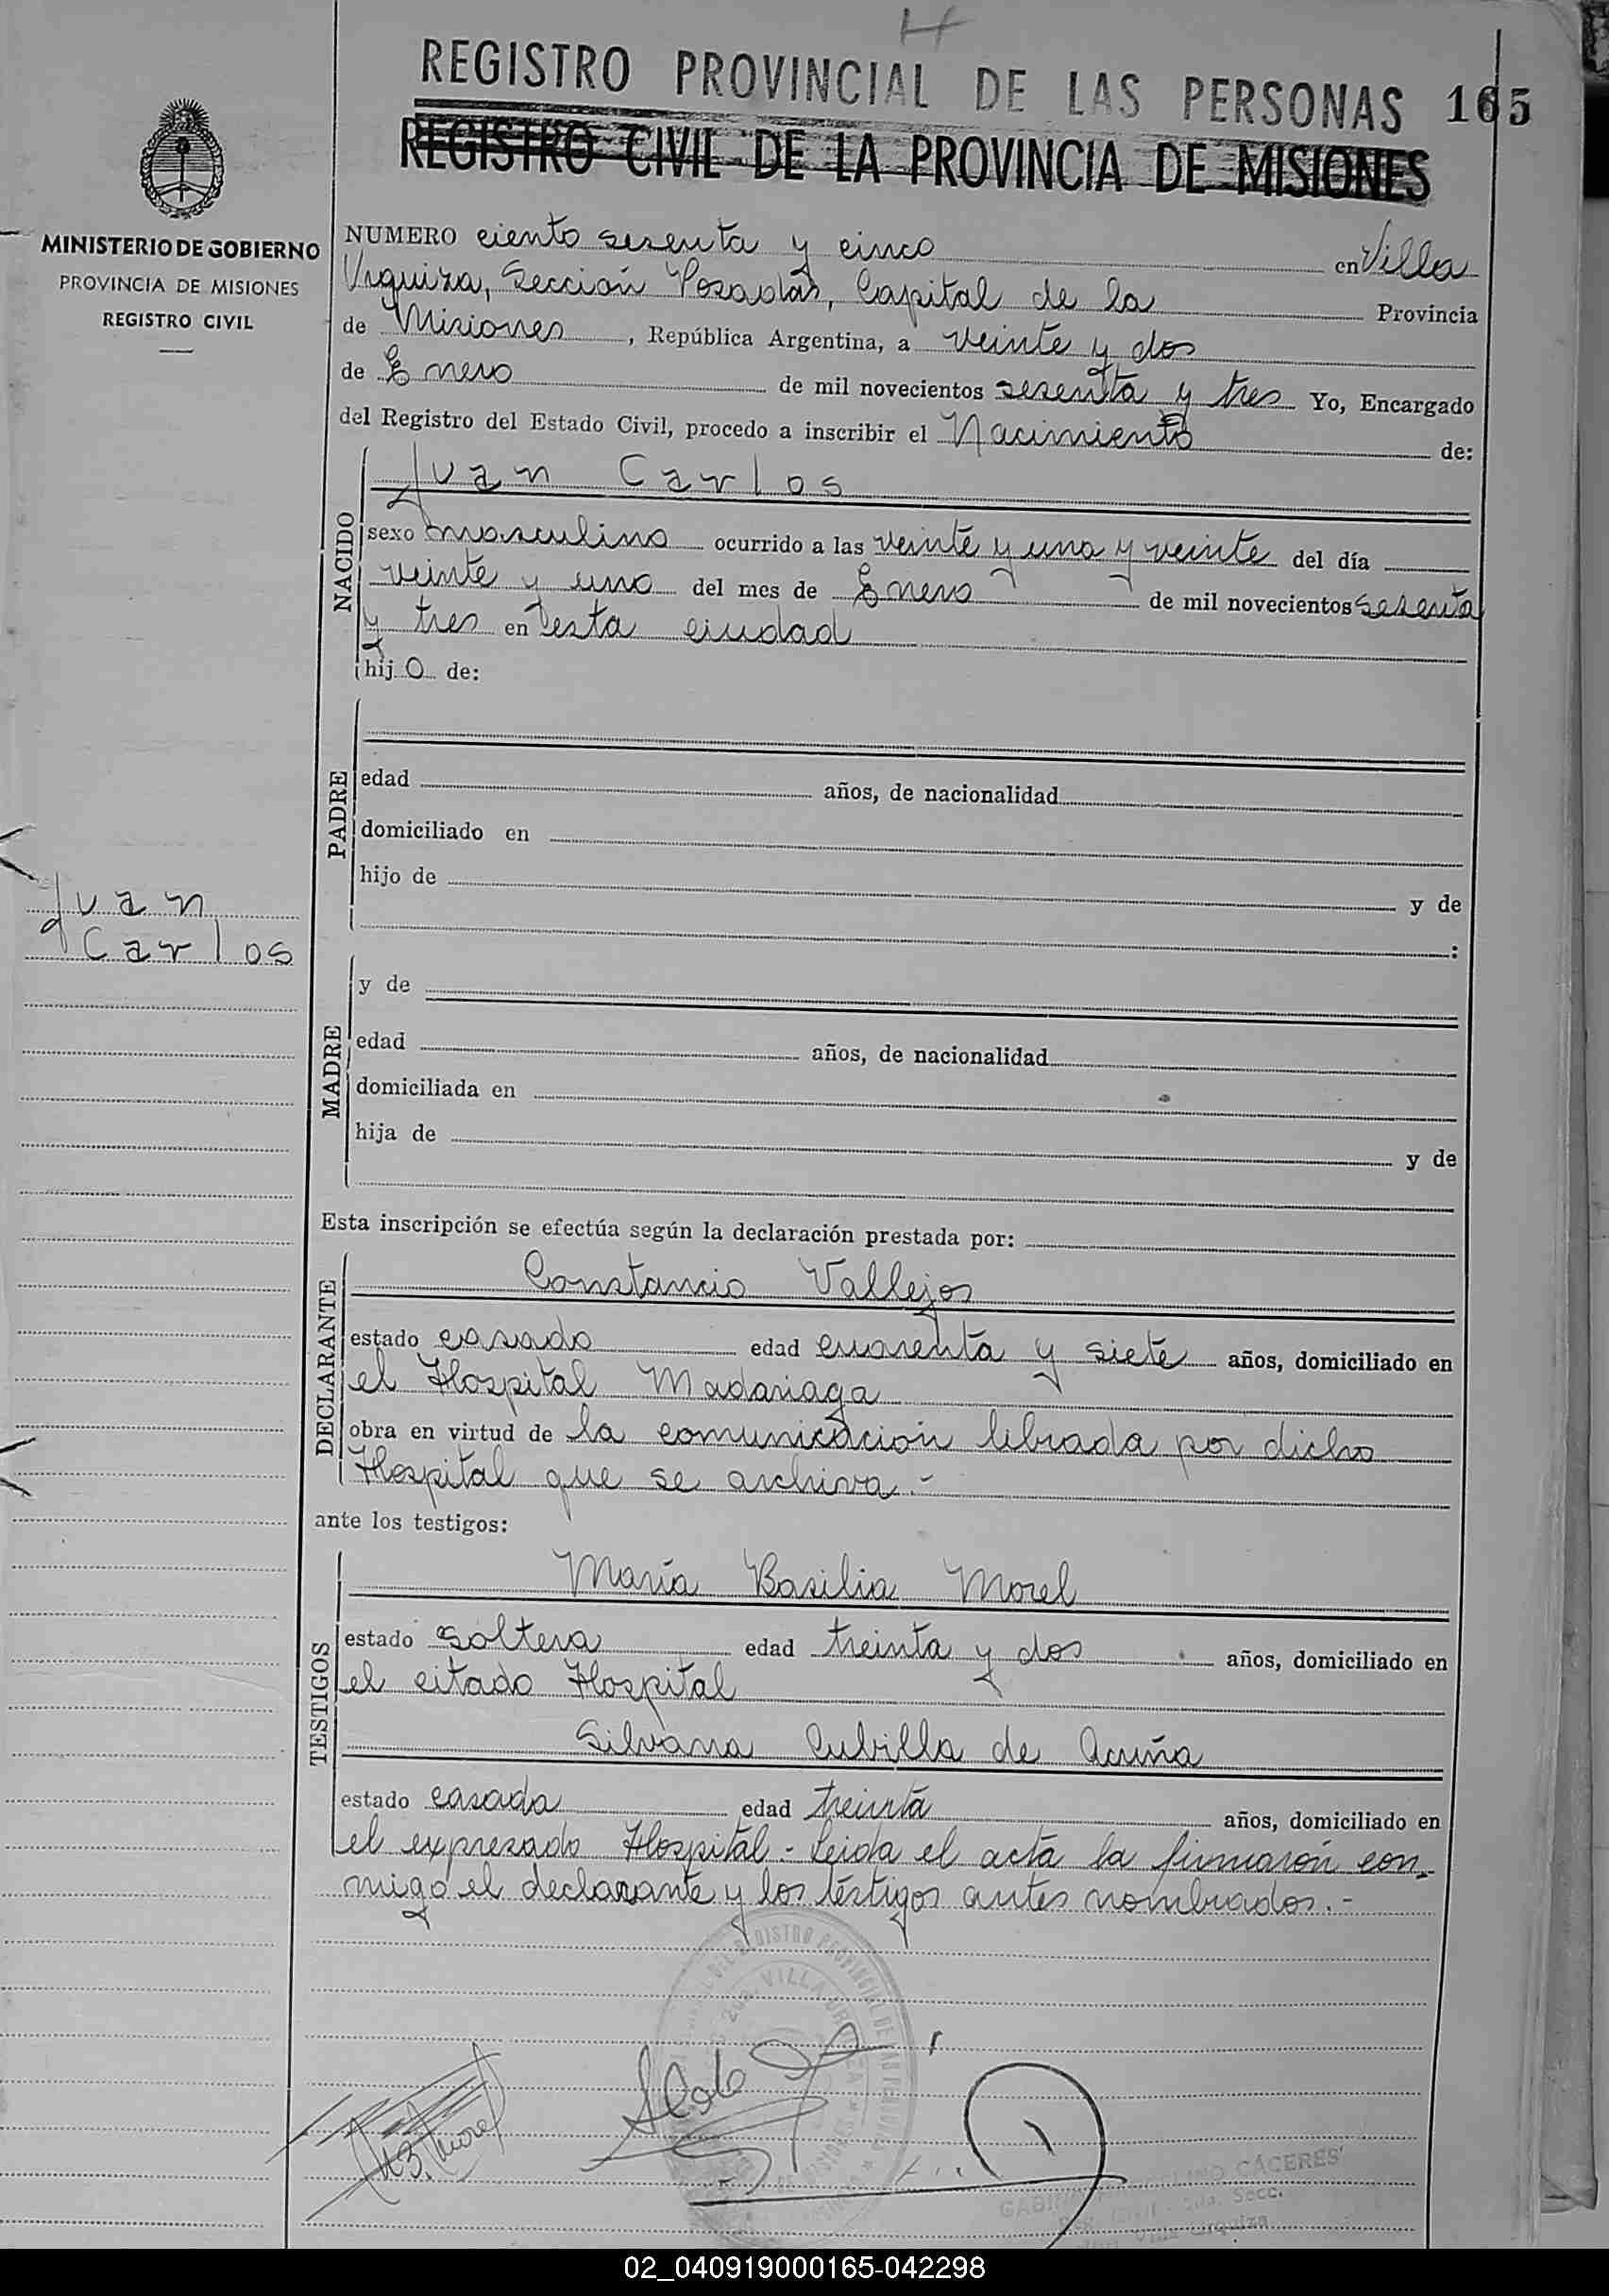 REGISTRO PROVINCIAL DE LAS PERSONAS 165
REGISTRO CIVIL DE LA PROVINCIA DE MISIONES
MINISTERIO DE GOBIERNO
PROVINCIA DE MISIONES
REGISTRO CIVIL
NUMERO ciento sesenta y cinco en Villa
Urquiza, Sección Posadas, Capital de la Provincia
de Misiones, República Argentina, a veinte y dos
de Enero de mil novecientos sesenta y tres Yo, Encargado
del Registro del Estado Civil, procedo a inscribir el Nacimiento de:
NACIDO
Juan Carlos
sexo masculino ocurrido a las veinte y una y veinte del día
veinte y uno del mes de Enero de mil novecientos sesenta
y tres en esta ciudad
hijo de:
PADRE
edad años, de nacionalidad
domiciliado en
hijo de y de
:
Juan
Carlos
MADRE
y de
edad años, de nacionalidad
domiciliada en
hija de y de
Esta inscripción se efectúa según la declaración prestada por:
DECLARANTE
Constancio Vallejos
estado casado edad cuarenta y siete años, domiciliado en
el Hospital Madariaga
obra en virtud de la comunicación librada por dicho
Hospital que se archiva.-
ante los testigos:
TESTIGOS
María Basilia Morel
estado soltera edad treinta y dos años, domiciliado en
el citado Hospital
Silvana Cubilla de Acuña
estado casada edad treinta años, domiciliado en
el expresado Hospital.- Leida el acta la firmarón con-
migo el declarante y los téstigos antes nombrados.-
M B. Morel
CÁCERES
02_040919000165-042298